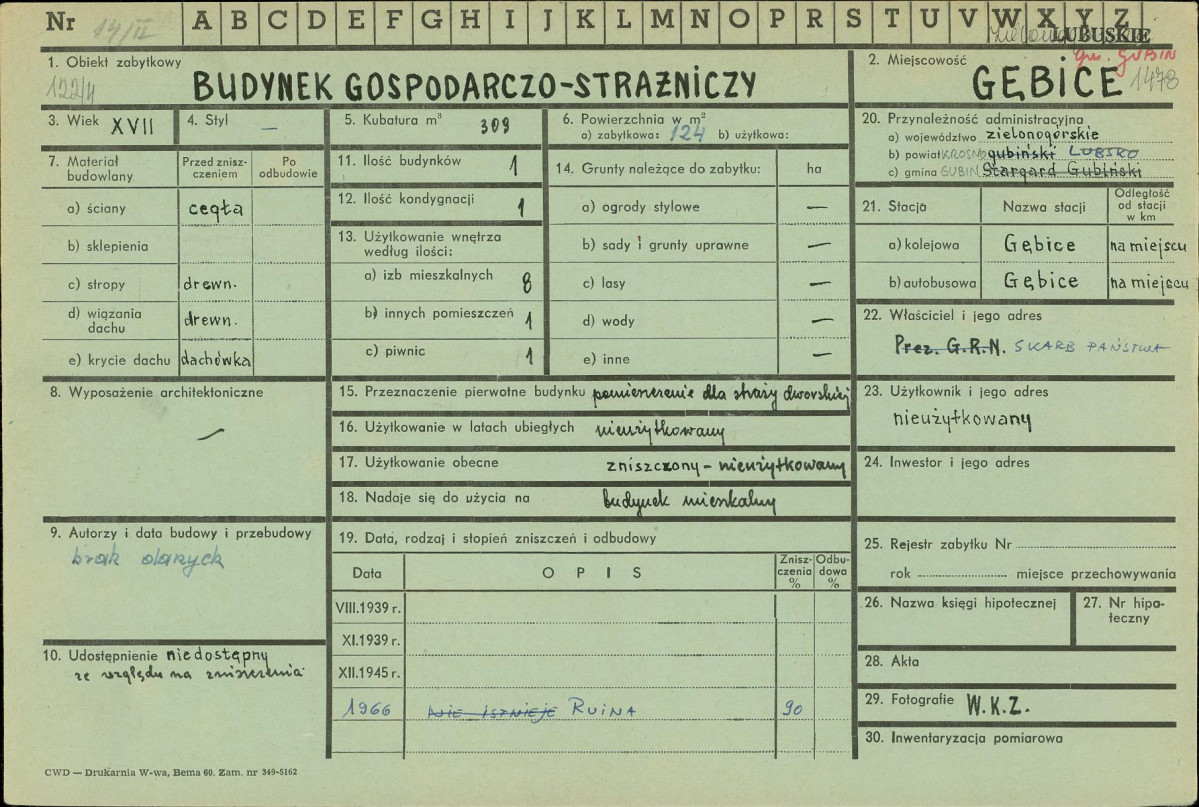 Nr 14/II A B C D E F G H I J K L M N O P R S T U V W X Y Z
LUBUSKIE
gm. GUBIN
1. Obiekt zabytkowy
122/4
BUDYNEK GOSPODARCZO-STRAŻNICZY
2. Miejscowość
GĘBICE 1478
3. Wiek XVII
4. Styl —
5. Kubatura m³ 309
6. Powierzchnia w m²
a) zabytkowa: 124 b) użytkowa:
20. Przynależność administracyjna
a) województwo zielonogórskie
b) powiat KROSNO gubiński LUBSKO
c) gmina GUBIN Stargard Gubiński
7. Materiał budowlany
Przed zniszczeniem
Po odbudowie
a) ściany cegła
b) sklepienia
c) stropy drewn.
d) wiązania dachu drewn.
e) krycie dachu dachówka
11. Ilość budynków 1
12. Ilość kondygnacji 1
13. Użytkowanie wnętrza według ilości:
a) izb mieszkalnych 8
b) innych pomieszczeń 1
c) piwnic 1
14. Grunty należące do zabytku: ha
a) ogrody stylowe —
b) sady i grunty uprawne —
c) lasy —
d) wody —
e) inne —
21. Stacja
Nazwa stacji
Odległość od stacji w km
a) kolejowa Gębice na miejscu
b) autobusowa Gębice na miejscu
22. Właściciel i jego adres
Prez. G.R.N. SKARB PAŃSTWA
8. Wyposażenie architektoniczne
—
15. Przeznaczenie pierwotne budynku pomieszczenie dla straży dworskiej
16. Użytkowanie w latach ubiegłych nieużytkowany
17. Użytkowanie obecne zniszczony – nieużytkowany
18. Nadaje się do użycia na budynek mieszkalny
23. Użytkownik i jego adres
nieużytkowany
24. Inwestor i jego adres
9. Autorzy i data budowy i przebudowy
brak danych
19. Data, rodzaj i stopień zniszczeń i odbudowy
Data
OPIS
Zniszczenia %
Odbudowa %
VIII.1939 r.
XI.1939 r.
XII.1945 r.
1966 NIE ISTNIEJE RUINA 90
25. Rejestr zabytku Nr
rok miejsce przechowywania
26. Nazwa księgi hipotecznej
27. Nr hipoteczny
10. Udostępnienie niedostępny
ze względu na zniszczenia
28. Akta
29. Fotografie W.K.Z.
30. Inwentaryzacja pomiarowa
CWD — Drukarnia W-wa, Bema 60. Zam. nr 349-5162